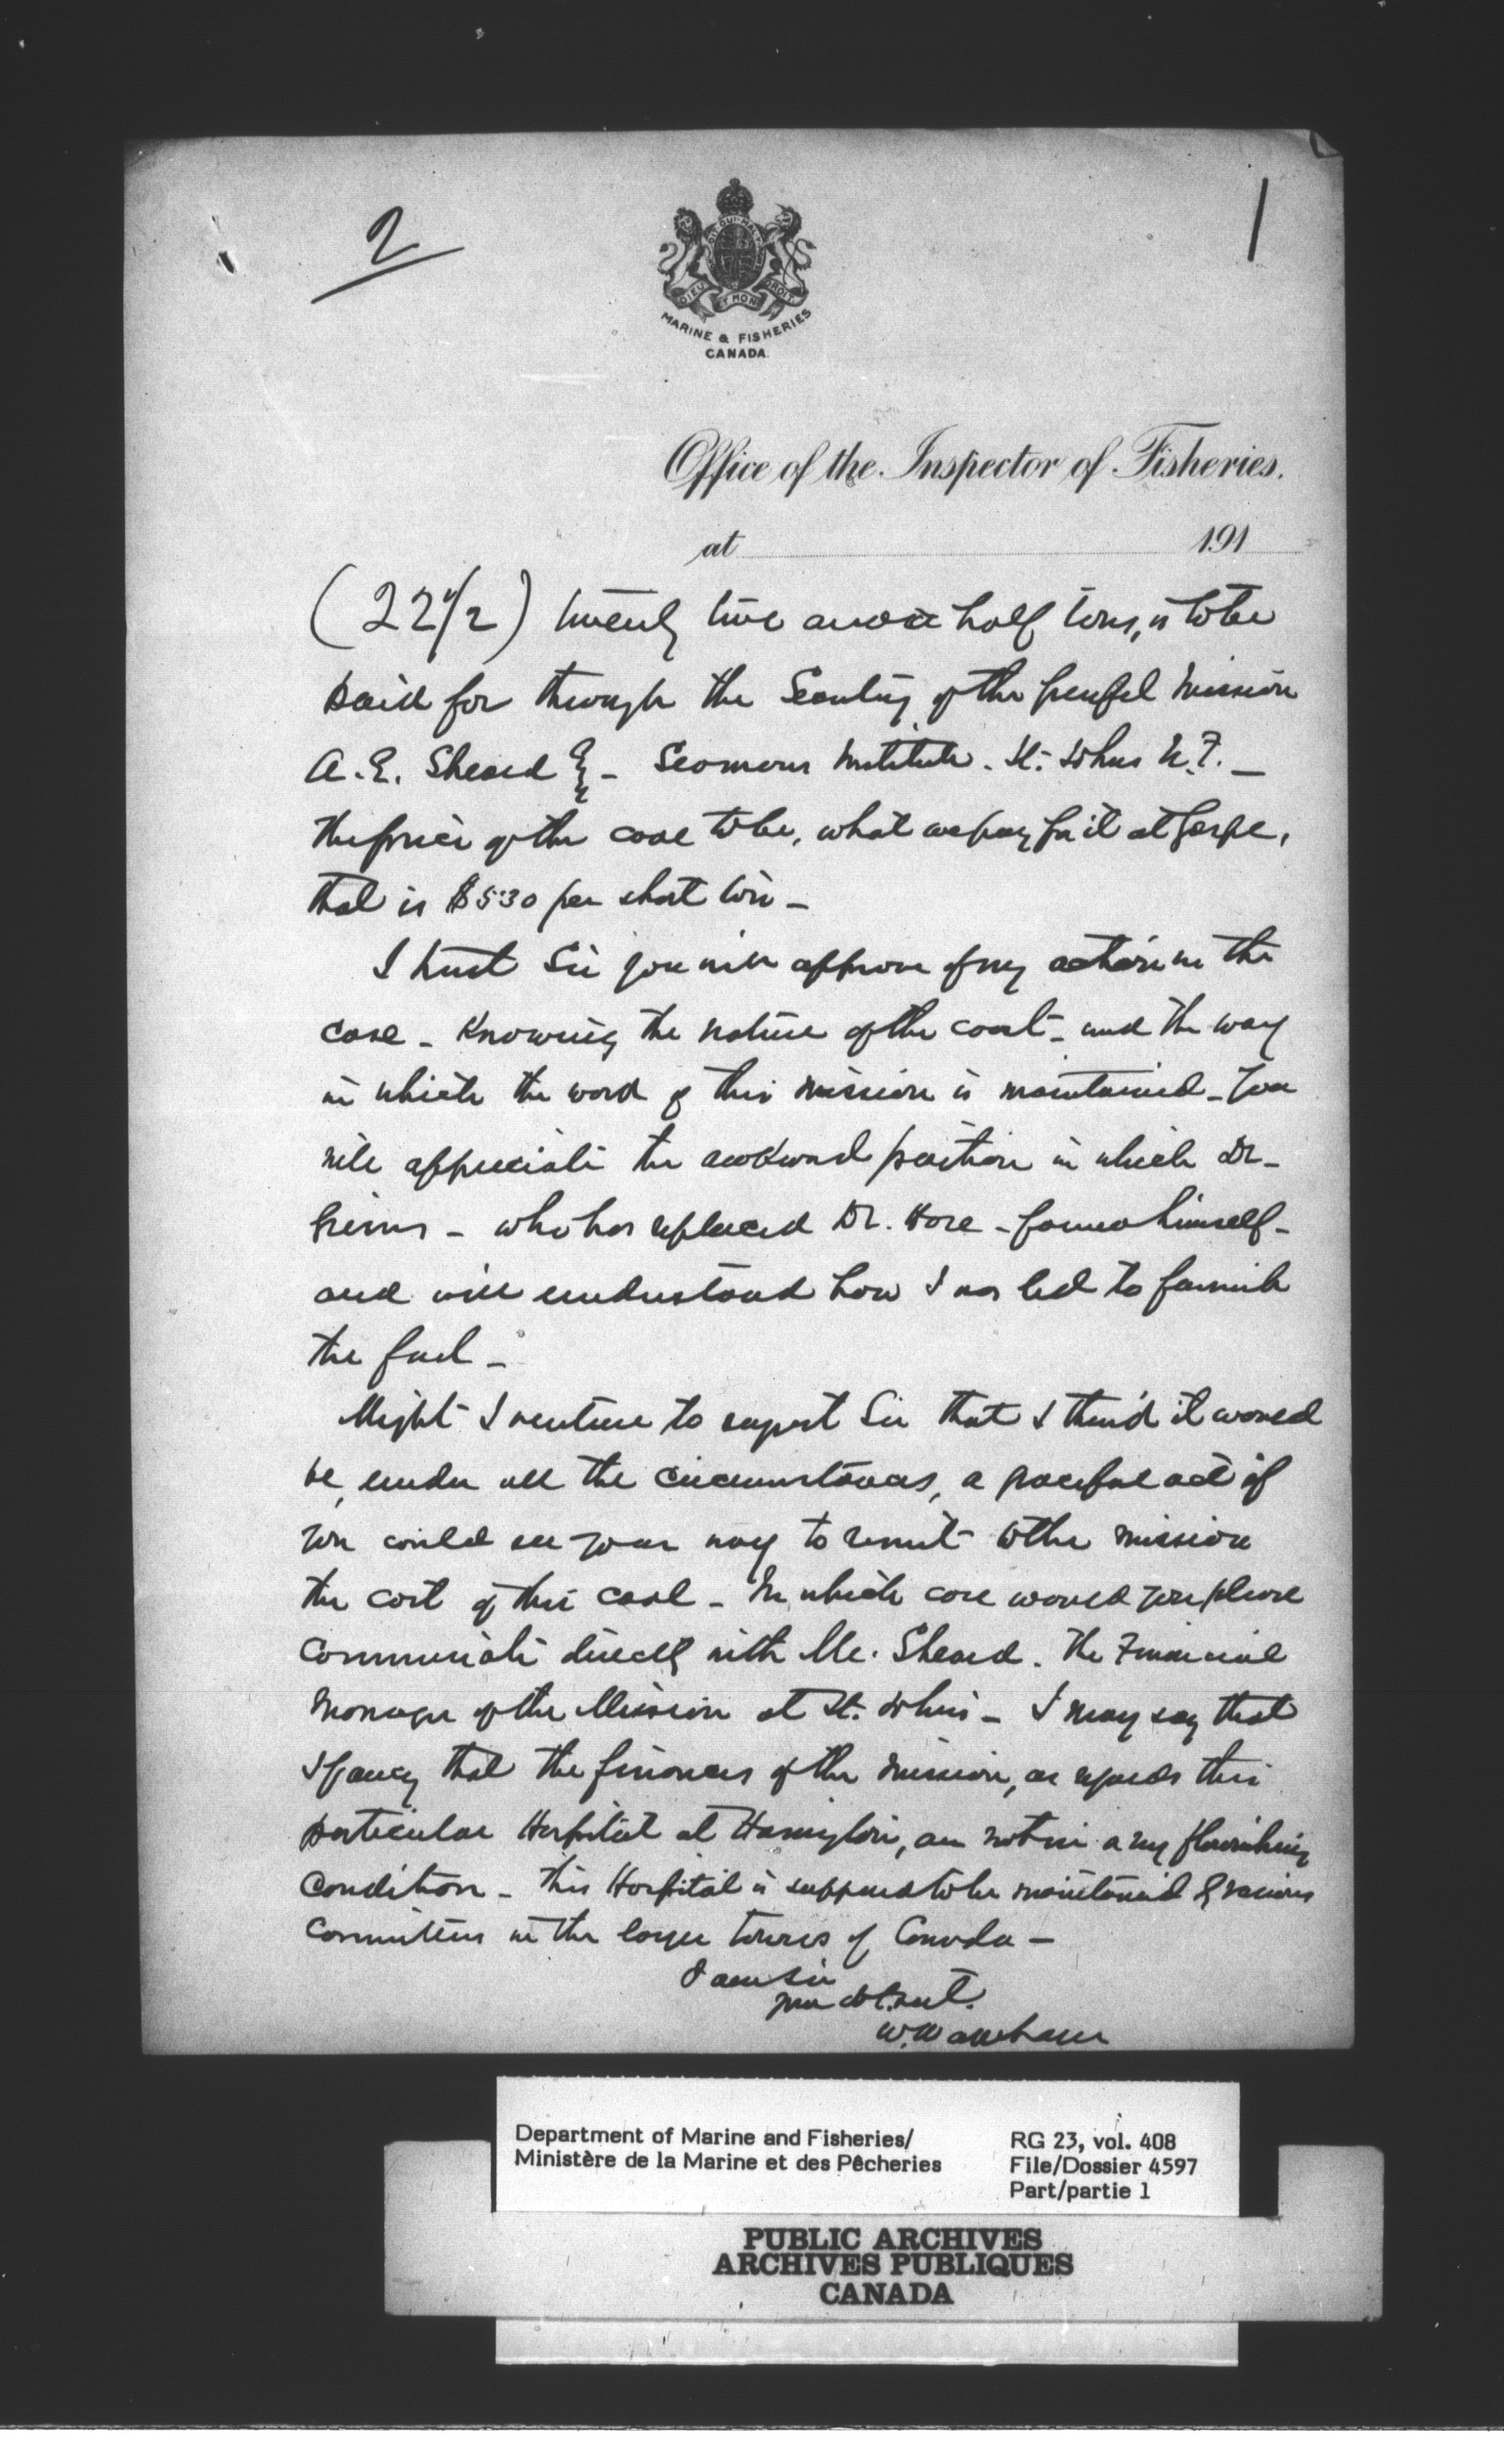 2
1
DIEU ET MON DROIT
MARINE & FISHERIES
CANADA.
Office of the Inspector of Fisheries.
at 191
(22 1/2) twenty two and a half tons, is to be
paid for through the Secretary of the Grenfell Mission
A. E. Sheard Esq - Seamens Institute. St. Johns N.F. -
The price of the coal to be, what we pay for it at Gaspe,
that is $5.30 per short ton -
I trust Sir you will approve of my action in the
case - Knowing the nature of the coast - and the way
in which the work of this mission is maintained - you
will appreciate the awkward position in which Dr -
- who has replaced Dr. Hare - found himself -
and will understand how I was led to furnish
the fuel -
Might I venture to suggest Sir that I think it would
be, under all the circumstances, a graceful act if
you could see your way to remit to the mission
the cost of this coal - In which case would you please
communicate directly with Mr. Sheard. The Financial
Manager of the Mission at St. Johns - I may say that
I fancy that the finances of the mission, as regards this
particular Hospital at Harrington, are not in a very flourishing
condition - This Hospital is supposed to be maintained by various
committees in the larger towns of Canada -
I am Sir
your obt. svt.
W. Wakeham
Department of Marine and Fisheries/
Ministère de la Marine et des Pêcheries
RG 23, vol. 408
File/Dossier 4597
Part/partie 1
PUBLIC ARCHIVES
ARCHIVES PUBLIQUES
CANADA